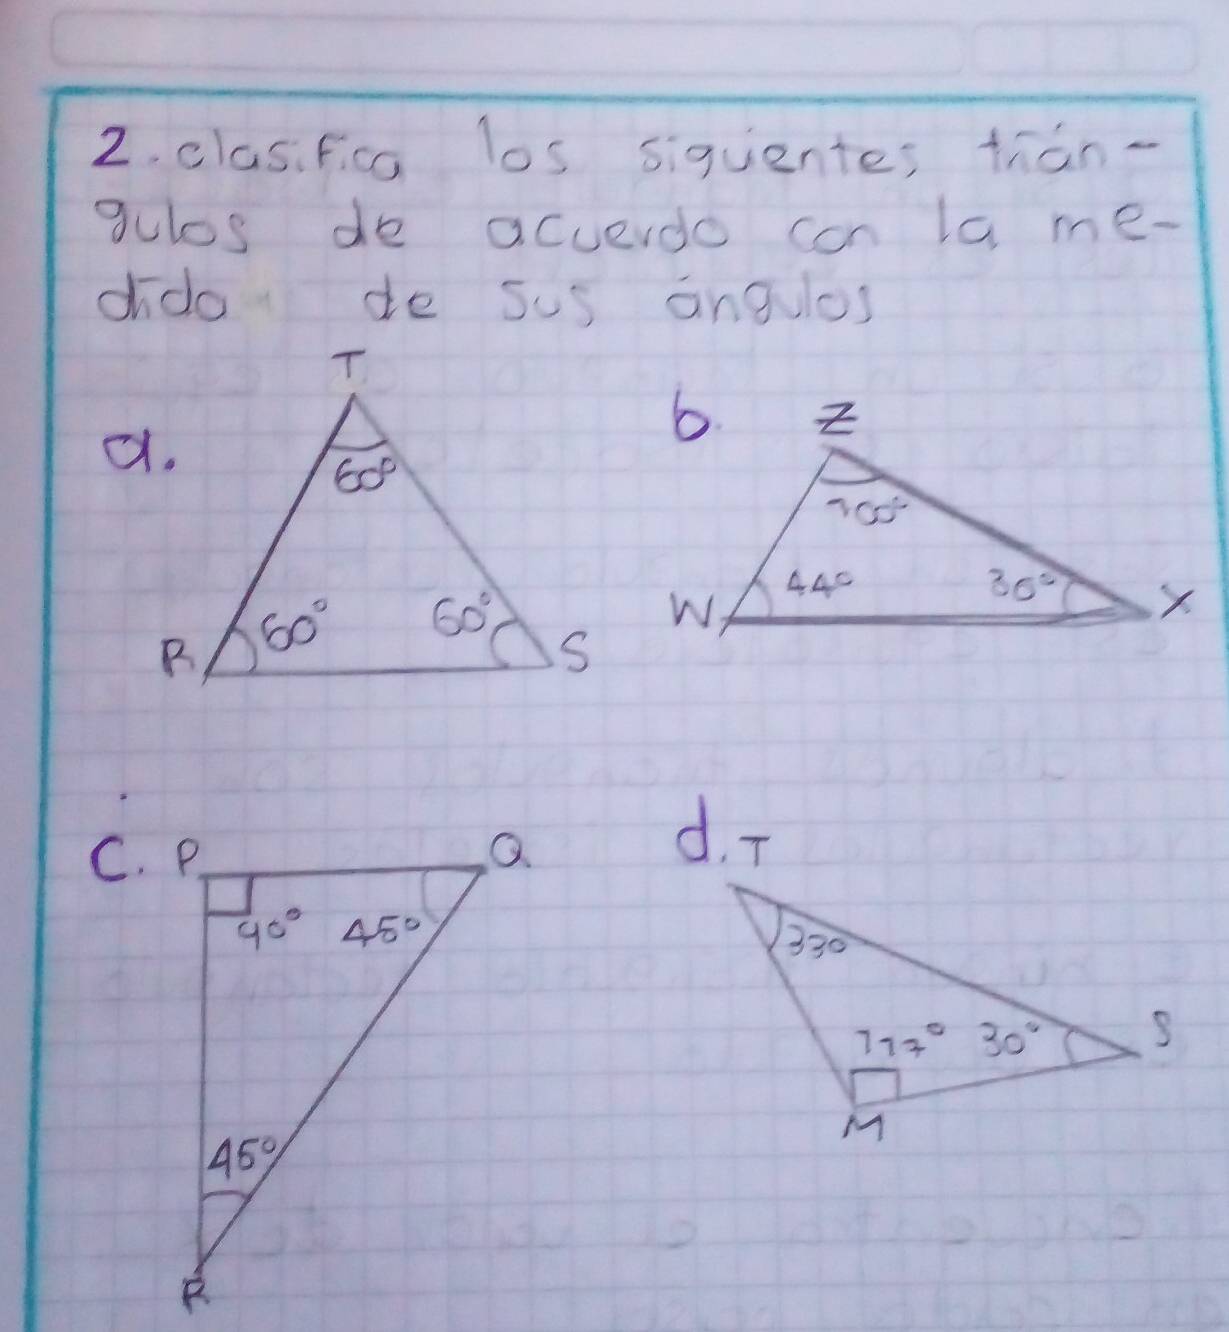 2. clasifica los siguientes trián-
gulos de acuerdo con la me-
dida de sus ángulos
a.
T
60°
R
60°
60°
S
b.
Z
100°
W
44°
36°
X
c.
P
Q
90°
45°
45°
R
d.
T
33°
117°
30°
S
M